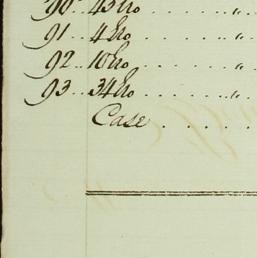 90.. 45 Do . . . . . . "
91.. 4 Do . . . . . . "
92.. 10 Do . . . . . . "
93.. 34 Do . . . . . . "
Case . . . . .